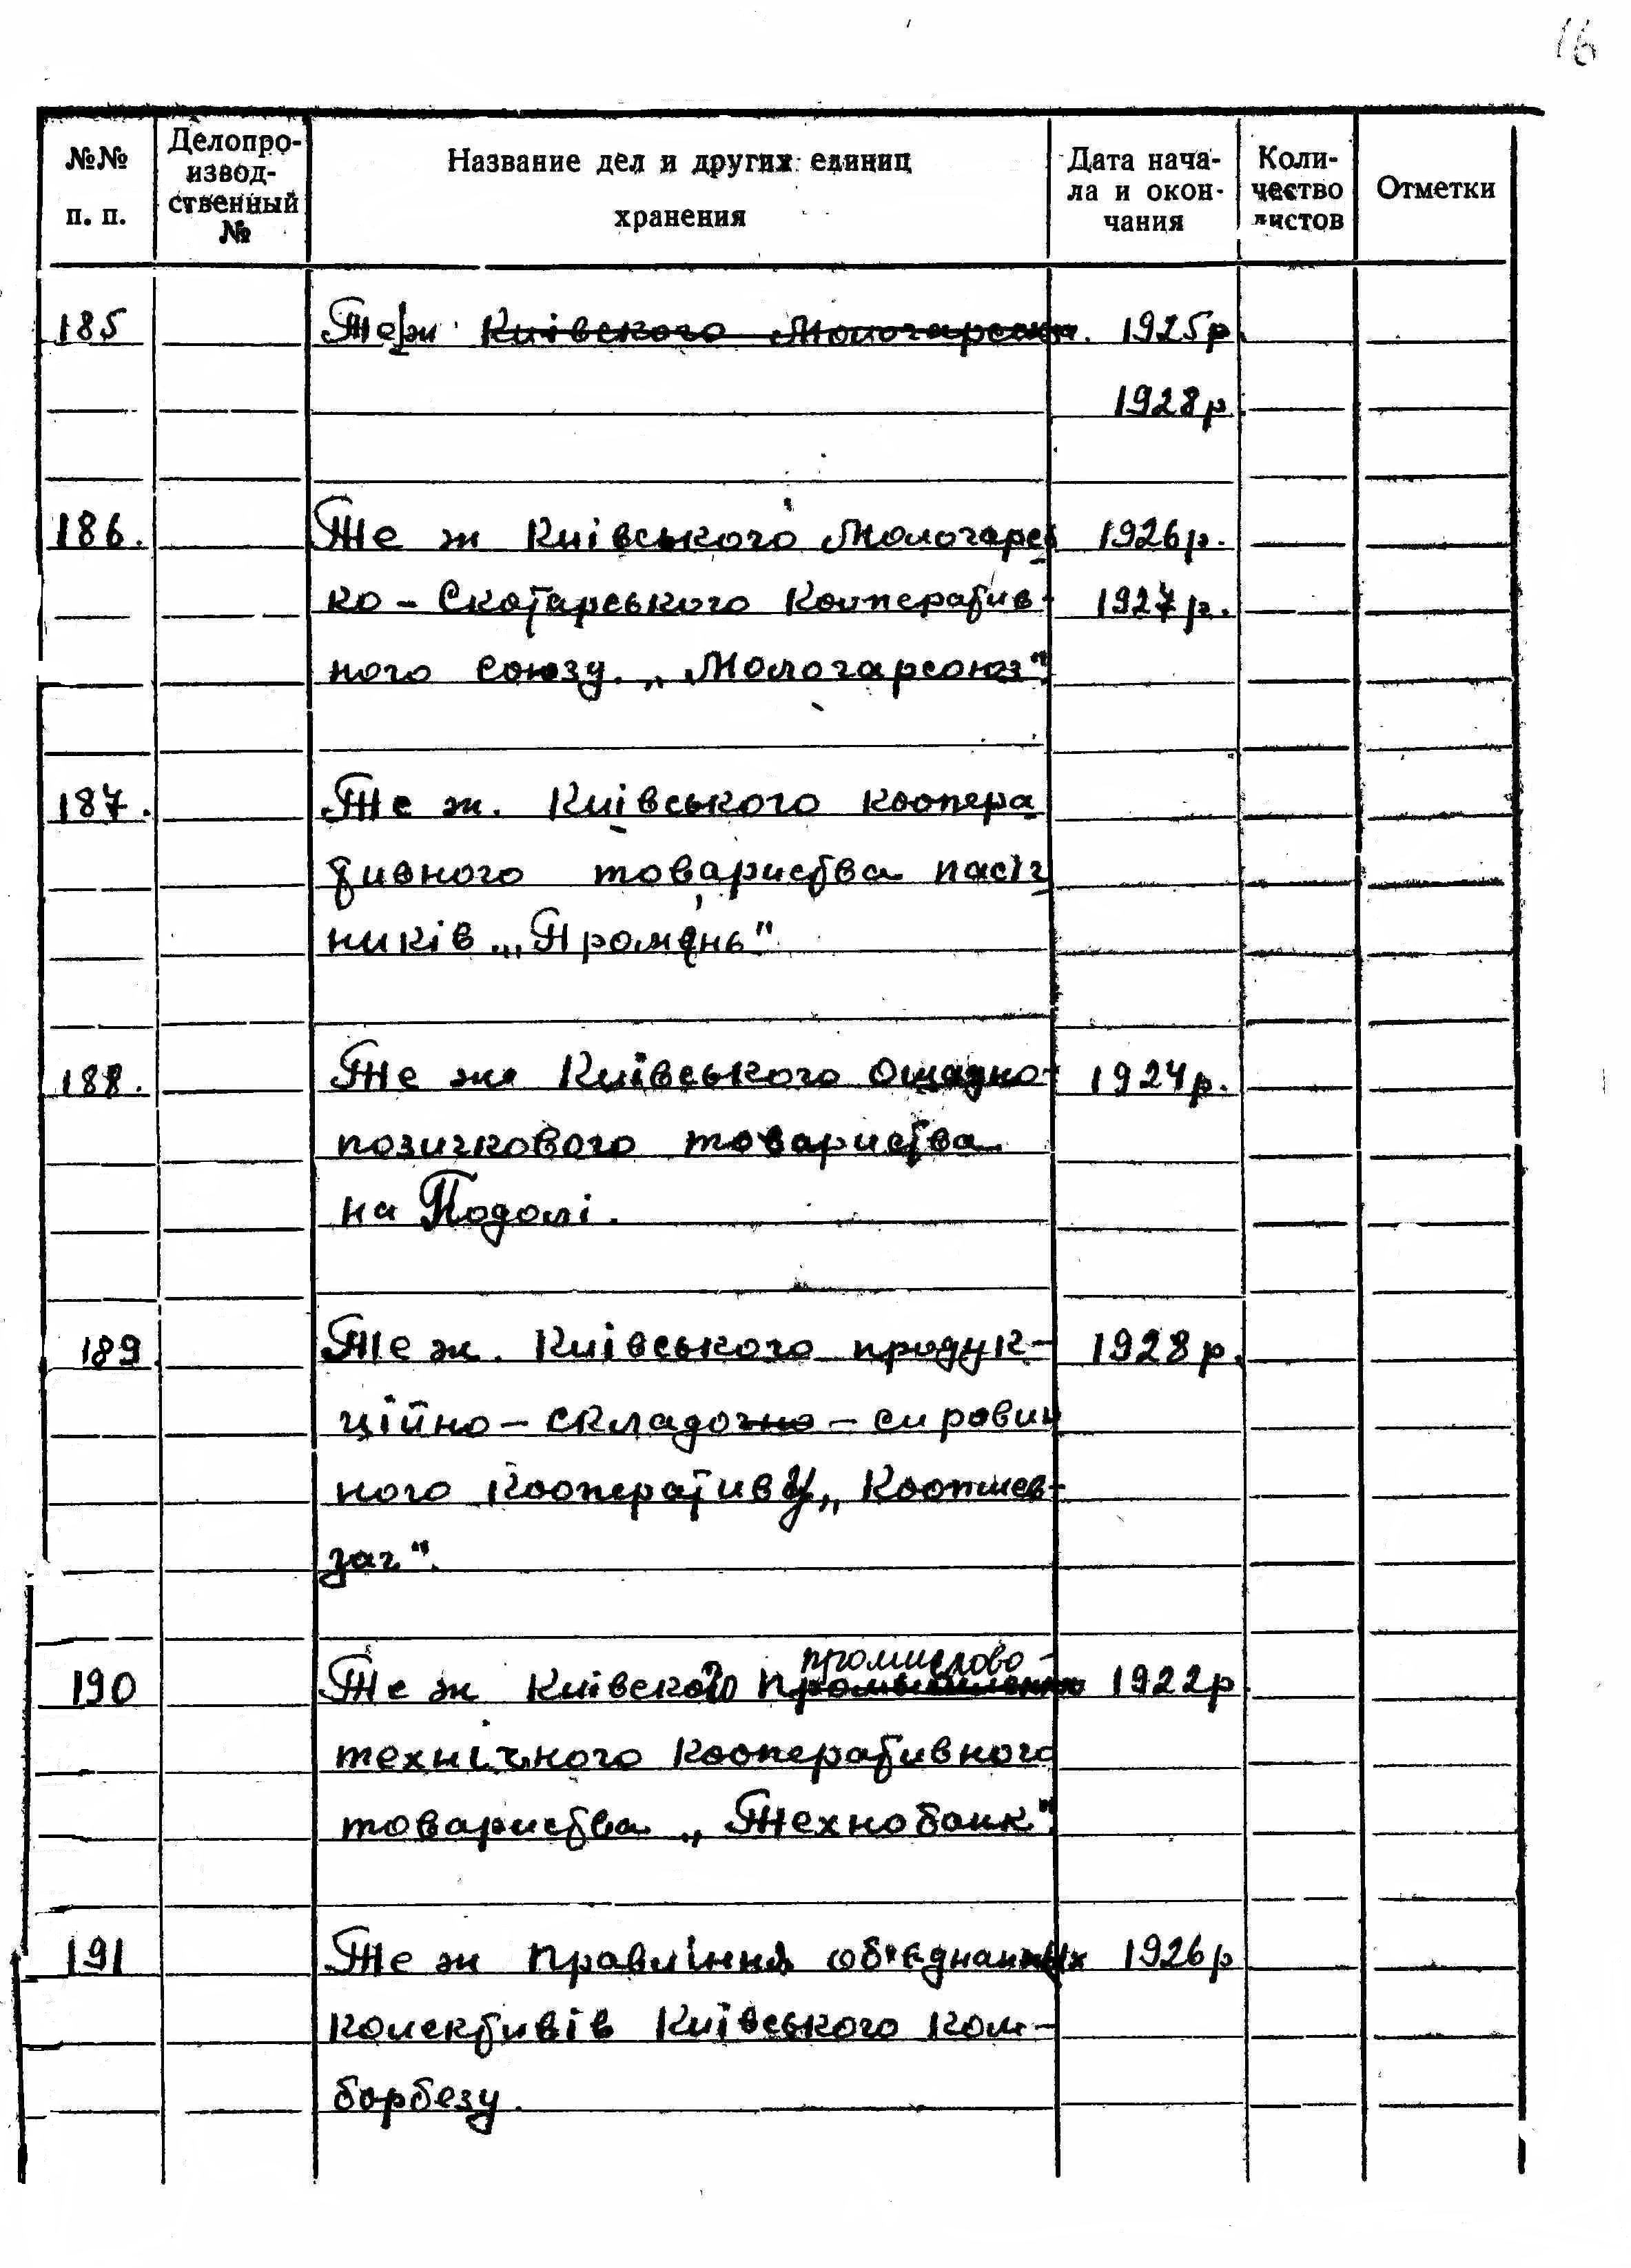 16
№№ п. п.
Делопро-
извод-
ственный
№
Название дел и других единиц
хранения
Дата нача-
ла и окон-
чания
Коли-
чество
листов
Отметки
185 Те ж Київского Молочарсоюз. 1925р.
1928р
186. Те ж Київського Молочарсь 1926р.
ко - Скотарського Кооператив- 1927р.
ного союзу „Молочарсоюз"
187. Те ж. Київського коопера
тивного товариства пасіч
ників „Промінь"
188. Те ж Київського Ощадно- 1924р.
позичкового товариства
на Подолі.
189 Те ж. Київського продук- 1928р.
ційно - складочно - сировин
ного кооперативу „Коопшев-
заг".
промислово-
190 Те ж Київского 1922р
технічного кооперативного
товариства „Технобанк"
191 Те ж Правління об'єднаних 1926р
колективів Київського Ком-
борбезу.